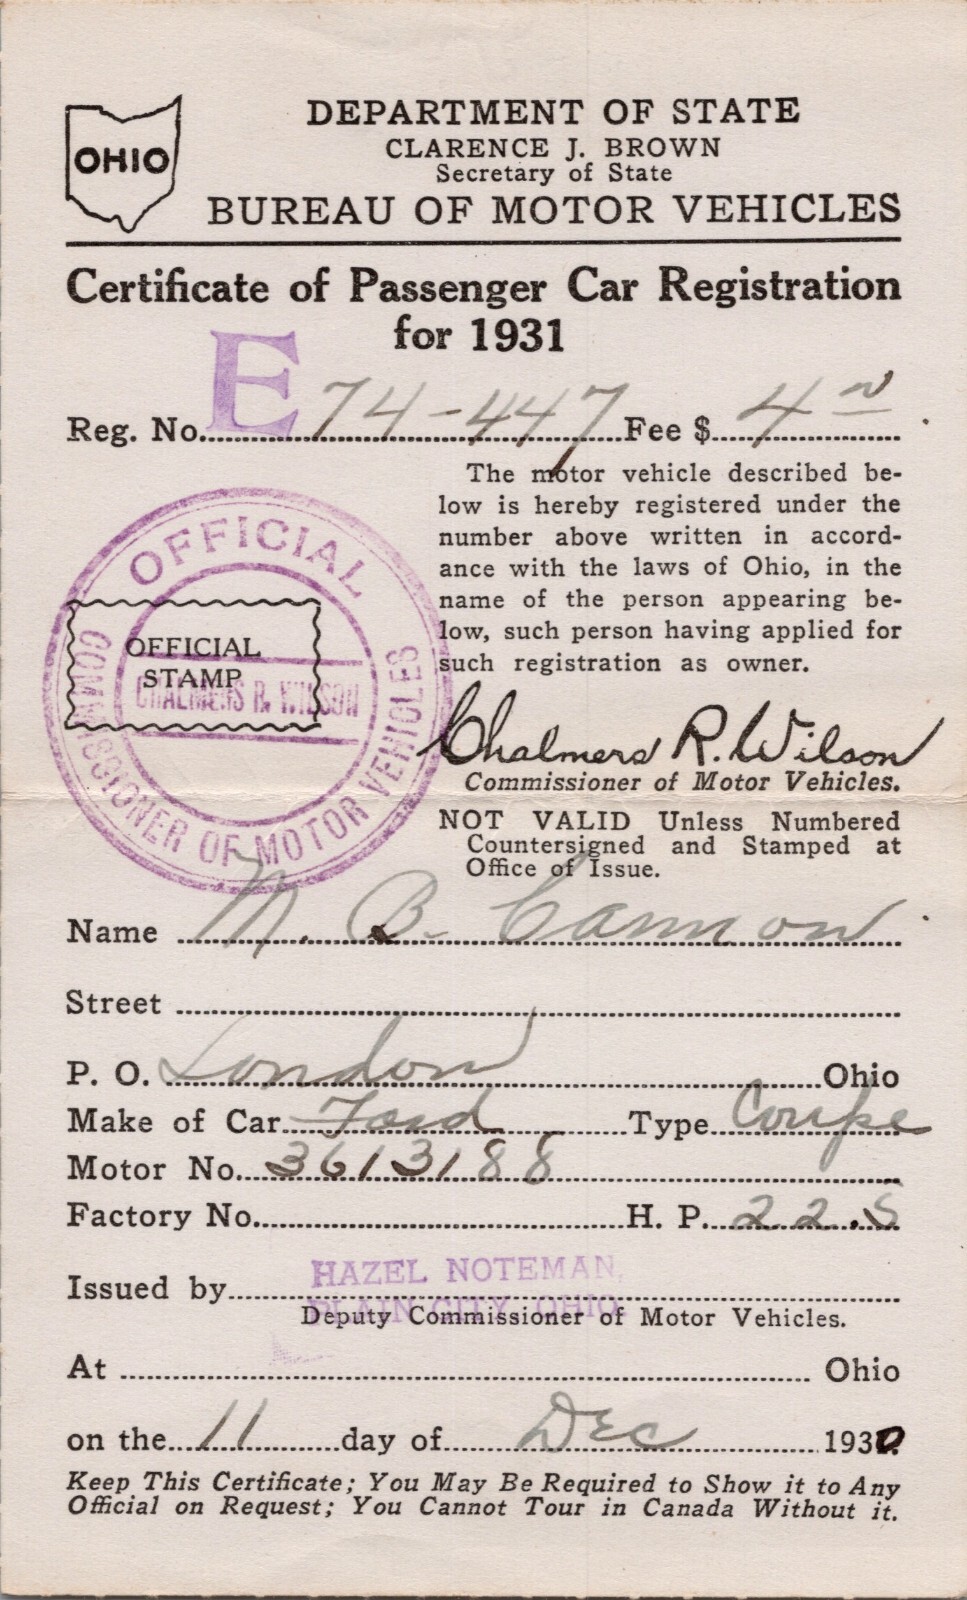 OHIO
DEPARTMENT OF STATE
CLARENCE J. BROWN
Secretary of State
BUREAU OF MOTOR VEHICLES
Certificate of Passenger Car Registration
for 1931
Reg. No. E 74-447 Fee $ 4
The motor vehicle described be-
low is hereby registered under the
number above written in accord-
ance with the laws of Ohio, in the
name of the person appearing be-
low, such person having applied for
such registration as owner.
OFFICIAL
COMMISSIONER OF MOTOR VEHICLES
CHALMERS R. WILSON
OFFICIAL
STAMP
Chalmers R. Wilson
Commissioner of Motor Vehicles.
NOT VALID Unless Numbered
Countersigned and Stamped at
Office of Issue.
Name M. B. Cannon
Street
P. O. London Ohio
Make of Car Ford Type Coupe
Motor No. 3613188
Factory No. H. P. 22.5
Issued by HAZEL NOTEMAN,
PLAIN CITY, OHIO.
Deputy Commissioner of Motor Vehicles.
At Ohio
on the 11 day of Dec 1930
Keep This Certificate; You May Be Required to Show it to Any
Official on Request; You Cannot Tour in Canada Without it.